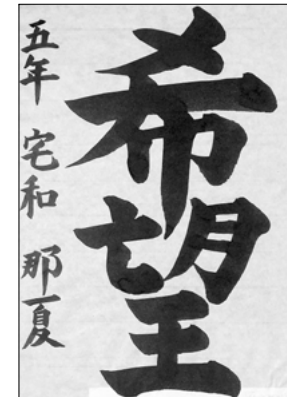 希望
五年 宅和 那夏